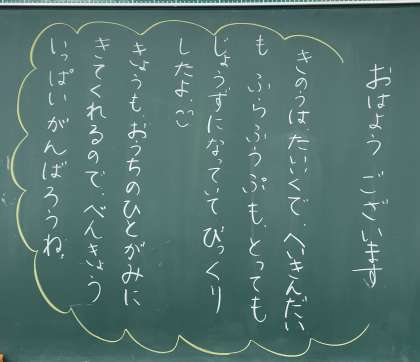 おはようございます
きのうは、たいいくで、へいきんだい
も ふらふうぷも、とっても
じょうずになっていてびっくり
したよ。
きょうも、おうちのひとがみに
きてくれるので、べんきょう
いっぱいがんばろうね。